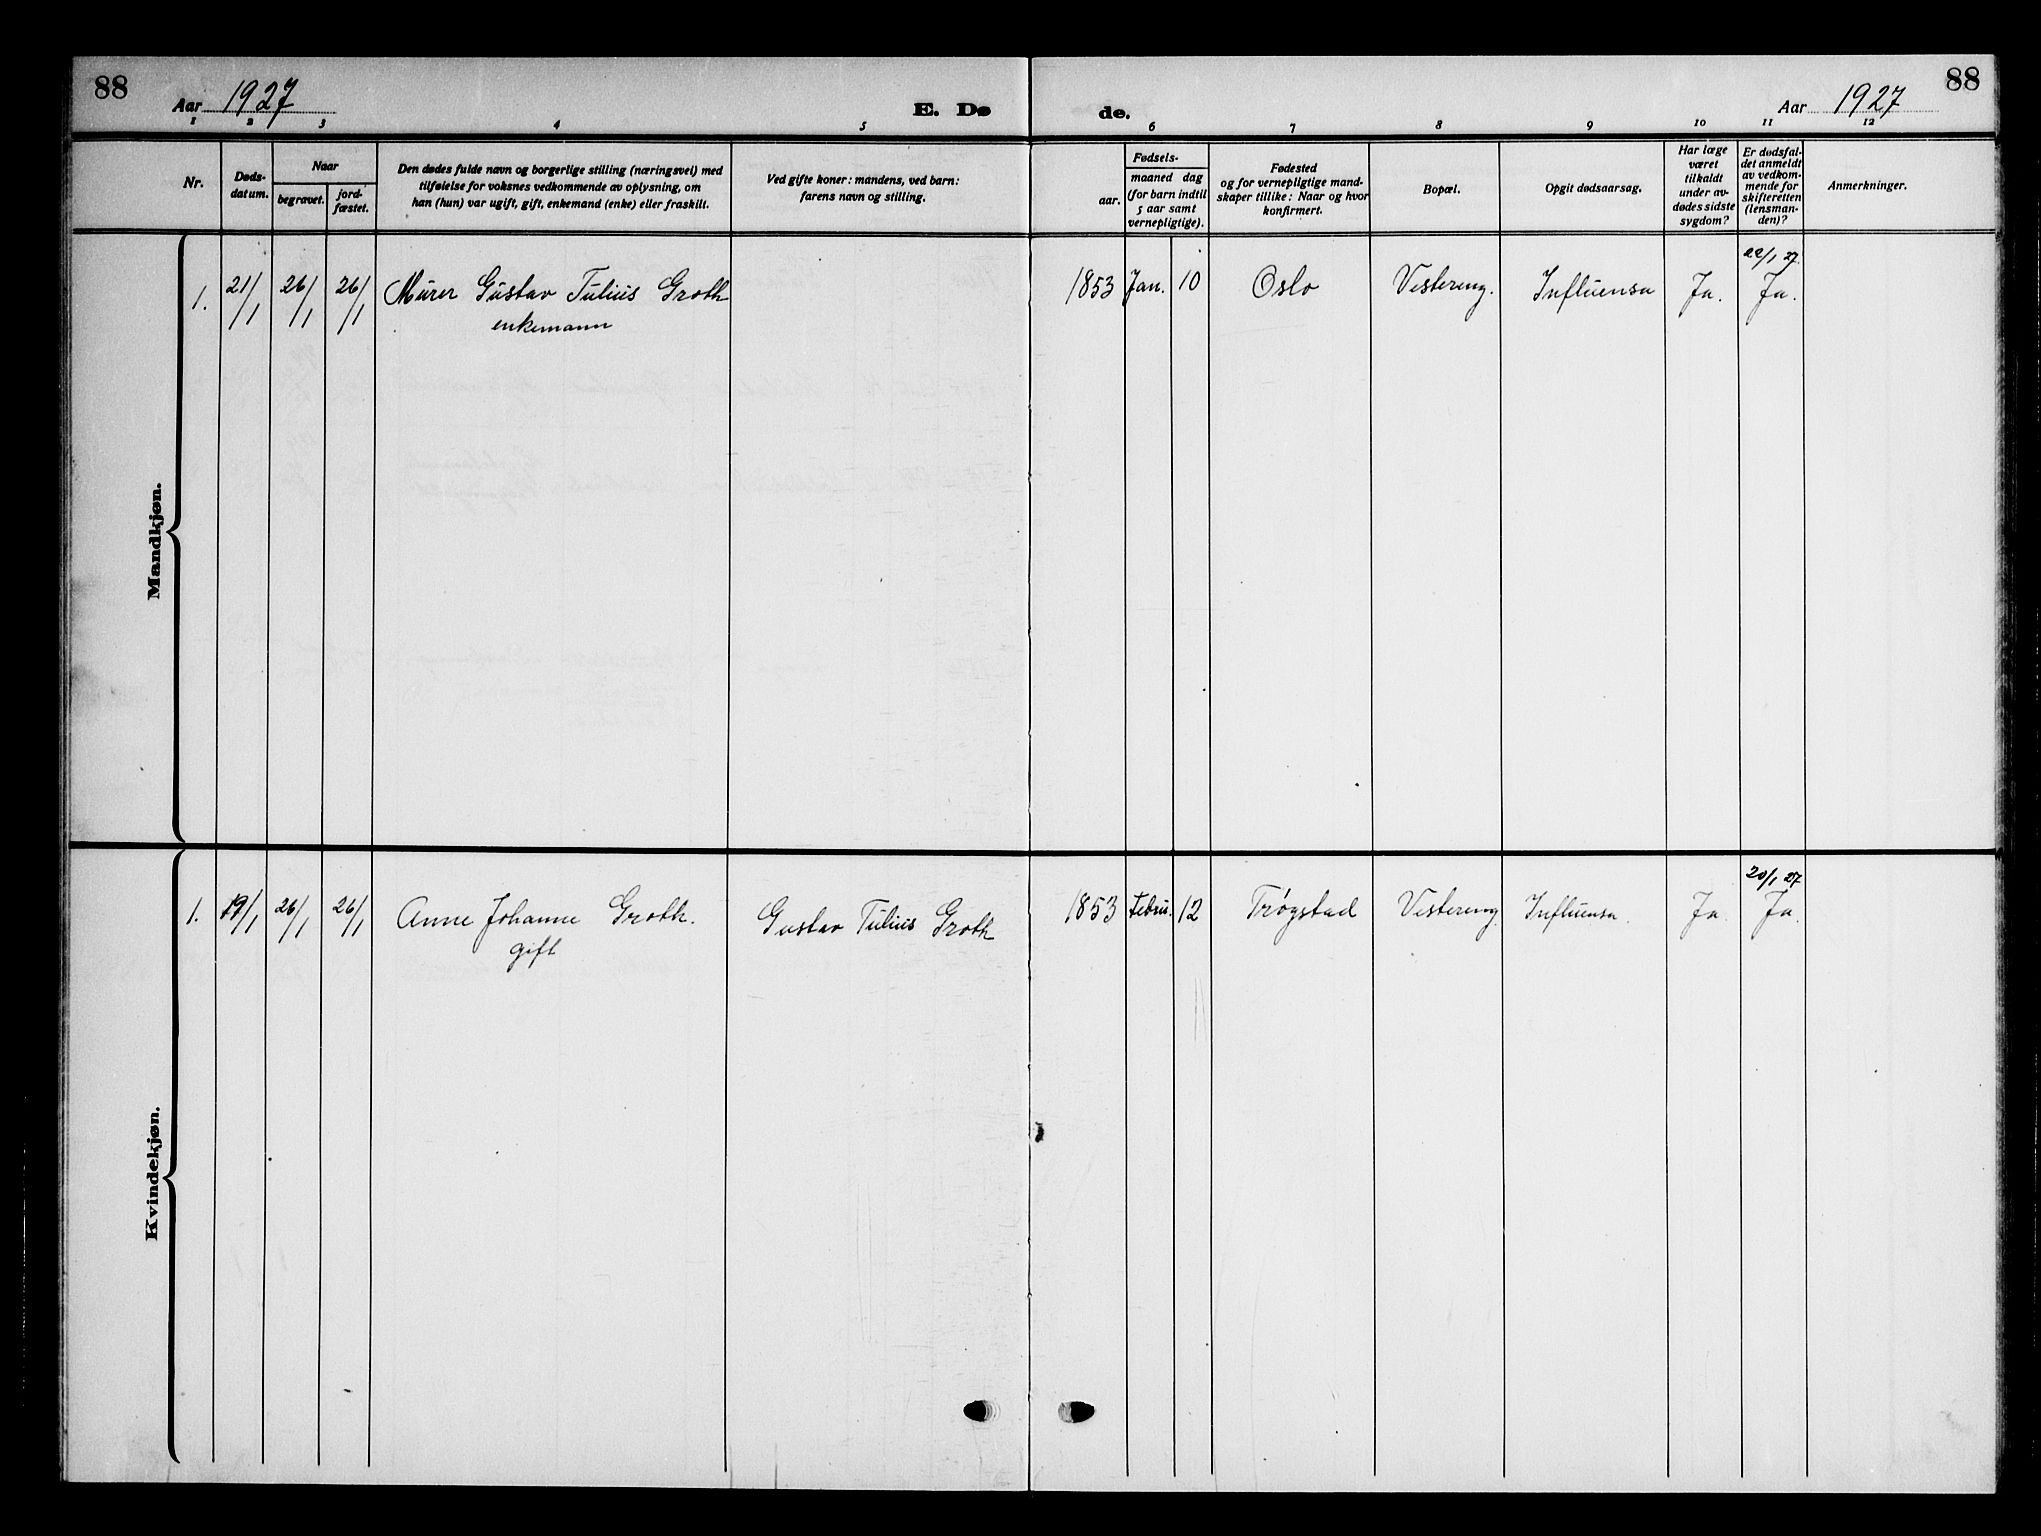 88
Aar 1927
E. Dø
de.
Aar 1927
88
1 2 3 4 5 6 7 8 9 10 11 12
Nr.
Døds-
datum.
Naar
begravet.
jord-
fæstet.
Den dødes fulde navn og borgerlige stilling (næringsvei) med
tilføielse for voksnes vedkommende av oplysning, om
han (hun) var ugift, gift, enkemand (enke) eller fraskilt.
Ved gifte koner: mandens, ved barn:
farens navn og stilling.
Fødsels-
aar.
maaned dag
(for barn indtil
5 aar samt
vernepligtige).
Fødested
og for vernepligtige mand-
skaper tillike: Naar og hvor
konfirmert.
Bopæl.
Opgit dødsaarsag.
Har læge
været
tilkaldt
under av-
dødes sidste
sygdom?
Er dødsfal-
det anmeldt
av vedkom-
mende for
skifteretten
(lensman-
den)?
Anmerkninger.
Mandkjøn.
22/1 27.
1. 21/1 26/1 26/1 Murer Gustav Julius Groth 1853 Jan. 10 Oslo Vestereng. Influensa Ja. Ja.
enkemann
Kvindekjøn.
20/1 27
1. 19/1 26/1 26/1 Anne Johanne Groth. Gustav Julius Groth 1853 Febru. 12 Trøgstad Vestereng. Influensa. Ja. Ja.
gift